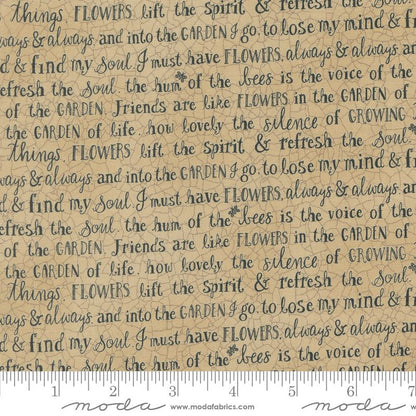 things. FLOWERS lift the Spirit & refresh the Soul
always & always and into the GARDEN I go, to lose my mind &
d & find my Soul I must have FLOWERS, always & always an
refresh the Soul. the hum of the bees is the voice of the
of the GARDEN. Friends are like FLOWERS in the GARDEN
the GARDEN of life. how lovely the silence of GROWING
things. FLOWERS lift the Spirit & refresh the Soul
ways & always and into the GARDEN I go, to lose my mind & f
d & find my Soul I must have FLOWERS, always & always an
efresh the Soul. the hum of the bees is the voice of the
of the GARDEN. Friends are like FLOWERS in the GARDEN
the GARDEN of life. how lovely the silence of GROWING
things. FLOWERS lift the Spirit & refresh the Soul
ways & always and into the GARDEN I go, to lose my mind & f
d & find my Soul I must have FLOWERS, always & always an
fresh the Soul. the hum of the bees is the voice of the
1 2 3 4 5 6 7
moda www.modafabrics.com moda